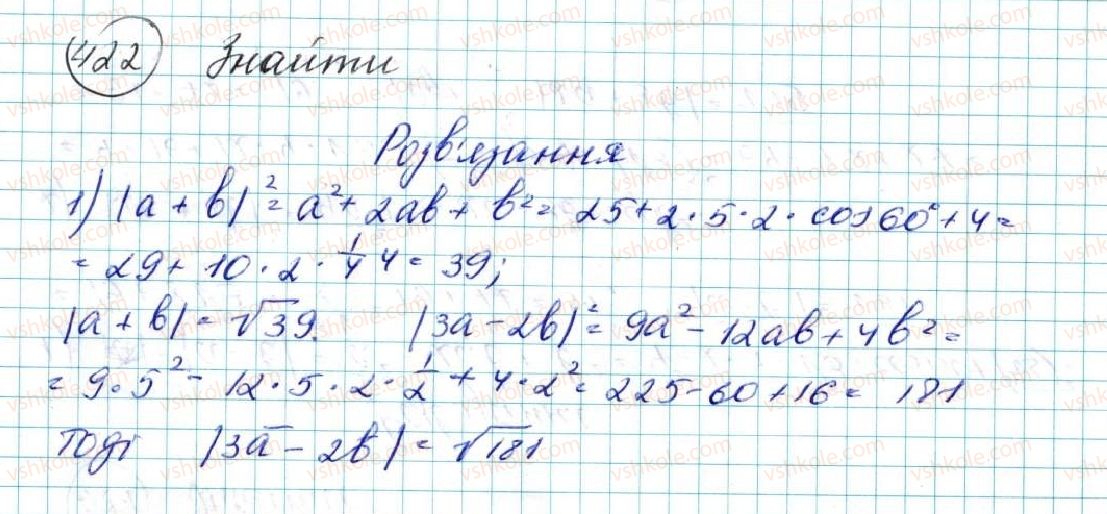 422 Знайти
Розв'язання
1) |a + b|² = a² + 2ab + b² = 25 + 2 · 5 · 2 · cos 60° + 4 =
= 29 + 10 · 2 · 1/4 4 = 39;
|a + b| = √39. |3a - 2b|² = 9a² - 12ab + 4b² =
= 9 · 5² - 12 · 5 · 2 · 1/2 + 4 · 2² = 225 - 60 + 16 = 181
Тоді |3a̅ - 2b| = √181